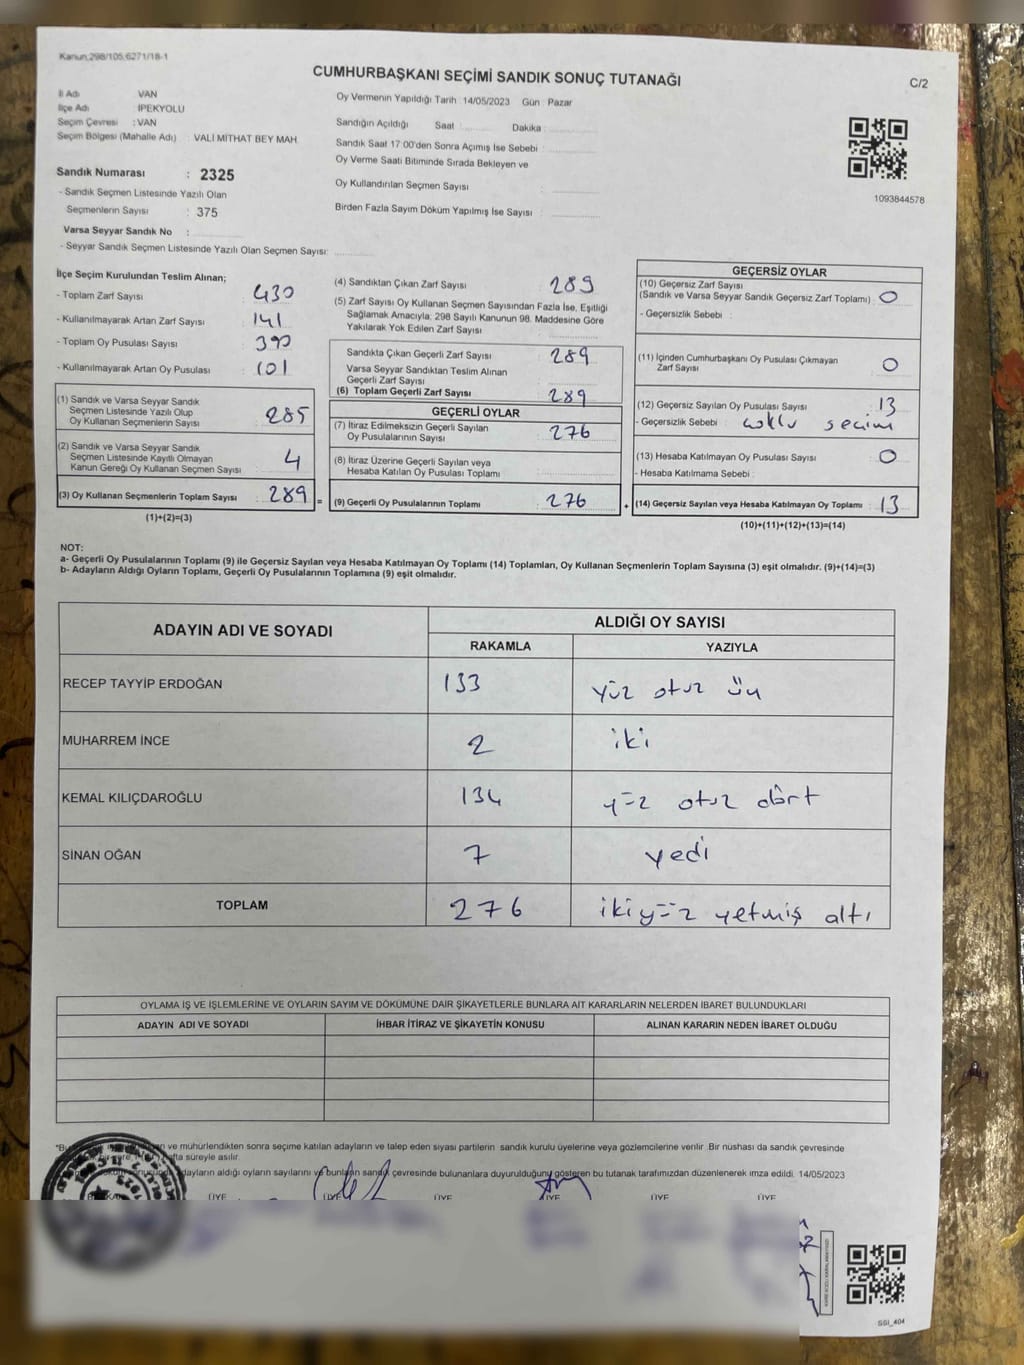 Kanun:298/105,6271/18-1
CUMHURBAŞKANI SEÇİMİ SANDIK SONUÇ TUTANAĞI
C/2
İl Adı VAN
İlçe Adı İPEKYOLU
Seçim Çevresi : VAN
Seçim Bölgesi (Mahalle Adı) : VALİ MİTHAT BEY MAH.
Sandık Numarası : 2325
- Sandık Seçmen Listesinde Yazılı Olan
Seçmenlerin Sayısı : 375
Varsa Seyyar Sandık No :
- Seyyar Sandık Seçmen Listesinde Yazılı Olan Seçmen Sayısı:
Oy Vermenin Yapıldığı Tarih : 14/05/2023 Gün : Pazar
Sandığın Açıldığı Saat : Dakika :
Sandık Saat 17:00'den Sonra Açımış İse Sebebi :
Oy Verme Saati Bitiminde Sırada Bekleyen ve
Oy Kullandırılan Seçmen Sayısı :
Birden Fazla Sayım Döküm Yapılmış İse Sayısı :
1093844578
İlçe Seçim Kurulundan Teslim Alınan;
- Toplam Zarf Sayısı : 430
- Kullanılmayarak Artan Zarf Sayısı : 141
- Toplam Oy Pusulası Sayısı : 390
- Kullanılmayarak Artan Oy Pusulası : 101
(1) Sandık ve Varsa Seyyar Sandık
Seçmen Listesinde Yazılı Olup
Oy Kullanan Seçmenlerin Sayısı : 285
(2) Sandık ve Varsa Seyyar Sandık
Seçmen Listesinde Kayıtlı Olmayan
Kanun Gereği Oy Kullanan Seçmen Sayısı : 4
(3) Oy Kullanan Seçmenlerin Toplam Sayısı : 289 =
(1)+(2)=(3)
(4) Sandıktan Çıkan Zarf Sayısı : 289
(5) Zarf Sayısı Oy Kullanan Seçmen Sayısından Fazla İse, Eşitliği
Sağlamak Amacıyla; 298 Sayılı Kanunun 98. Maddesine Göre
Yakılarak Yok Edilen Zarf Sayısı
Sandıkta Çıkan Geçerli Zarf Sayısı : 289
Varsa Seyyar Sandıktan Teslim Alınan
Geçerli Zarf Sayısı :
(6) Toplam Geçerli Zarf Sayısı : 289
GEÇERLİ OYLAR
(7) İtiraz Edilmeksizin Geçerli Sayılan
Oy Pusulalarının Sayısı : 276
(8) İtiraz Üzerine Geçerli Sayılan veya
Hesaba Katılan Oy Pusulası Toplamı :
(9) Geçerli Oy Pusulalarının Toplamı : 276 +
GEÇERSİZ OYLAR
(10) Geçersiz Zarf Sayısı
(Sandık ve Varsa Seyyar Sandık Geçersiz Zarf Toplamı) : 0
- Geçersizlik Sebebi :
(11) İçinden Cumhurbaşkanı Oy Pusulası Çıkmayan
Zarf Sayısı : 0
(12) Geçersiz Sayılan Oy Pusulası Sayısı : 13
- Geçersizlik Sebebi : çoklu seçim
(13) Hesaba Katılmayan Oy Pusulası Sayısı : 0
- Hesaba Katılmama Sebebi :
(14) Geçersiz Sayılan veya Hesaba Katılmayan Oy Toplamı : 13
(10)+(11)+(12)+(13)=(14)
NOT:
a- Geçerli Oy Pusulalarının Toplamı (9) ile Geçersiz Sayılan veya Hesaba Katılmayan Oy Toplamı (14) Toplamları, Oy Kullanan Seçmenlerin Toplam Sayısına (3) eşit olmalıdır. (9)+(14)=(3)
b- Adayların Aldığı Oyların Toplamı, Geçerli Oy Pusulalarının Toplamına (9) eşit olmalıdır.
ADAYIN ADI VE SOYADI ALDIĞI OY SAYISI
RAKAMLA YAZIYLA
RECEP TAYYİP ERDOĞAN 133 yüz otuz üç
MUHARREM İNCE 2 iki
KEMAL KILIÇDAROĞLU 134 yüz otuz dört
SİNAN OĞAN 7 yedi
TOPLAM 276 ikiyüz yetmiş altı
OYLAMA İŞ VE İŞLEMLERİNE VE OYLARIN SAYIM VE DÖKÜMÜNE DAİR ŞİKAYETLERLE BUNLARA AİT KARARLARIN NELERDEN İBARET BULUNDUKLARI
ADAYIN ADI VE SOYADI İHBAR İTİRAZ VE ŞİKAYETİN KONUSU ALINAN KARARIN NEDEN İBARET OLDUĞU
ve mühürlendikten sonra seçime katılan adayların ve talep eden siyasi partilerin sandık kurulu üyelerine veya gözlemcilerine verilir. Bir nüshası da sandık çevresinde
süreyle asılır.
adayların aldığı oyların sayılarını ve bunların sandık çevresinde bulunanlara duyurulduğunu gösteren bu tutanak tarafımızdan düzenlenerek imza edildi. 14/05/2023
ÜYE ÜYE ÜYE ÜYE ÜYE ÜYE
SSI_404